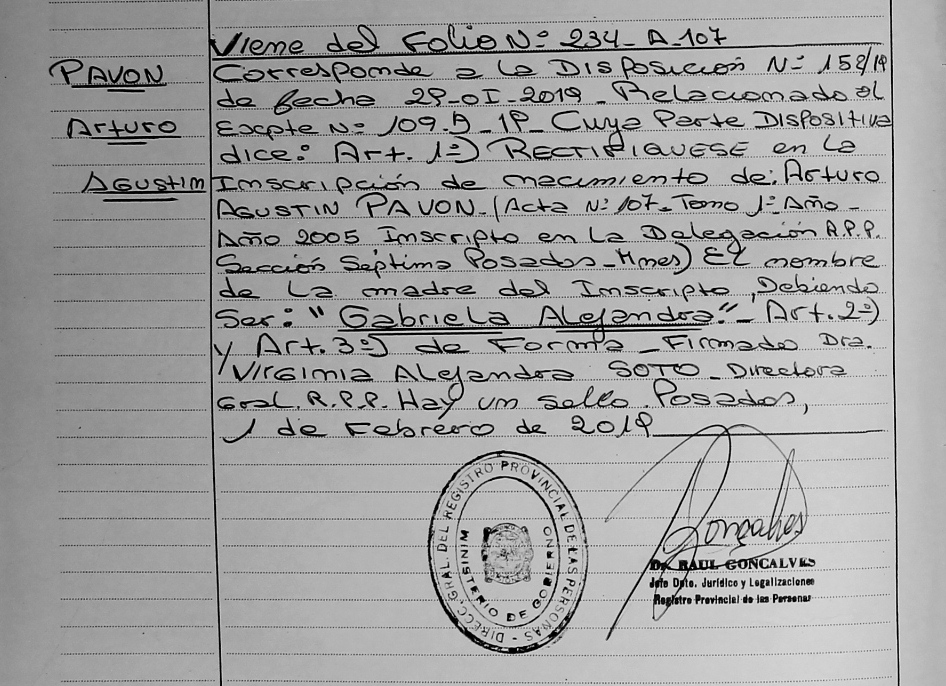 Viene del Folio Nº 234-A-107
PAVON
Arturo
Agustin
Corresponde a la Disposición Nº 158/19
de fecha 29-01-2019 - Relacionado al
Expte Nº 109-D-19 - Cuya Parte DISPOSITIVA
dice: Art. 1º) RECTIFIQUESE en la
Inscripción de nacimiento de: Arturo
AGUSTIN PAVON - (Acta Nº 107 - Tomo 1º - Año -
Año 2005 Inscripto en la Delegación R.P.P.
Sección Séptima Posadas - Mnes) El nombre
de la madre del Inscripto, Debiendo
Ser: "Gabriela Alejandra" - Art. 2º)
y Art. 3º) de Forma - Firmado Dra.
Virginia Alejandra SOTO - Directora
Gral. R.P.P. Hay un sello. Posadas,
1 de Febrero de 2019
DIRECC. GRAL. DEL REGISTRO PROVINCIAL DE LAS PERSONAS -
MINISTERIO DE GOBIERNO
Goncalves
Dr. RAUL GONCALVES
Jefe Dpto. Jurídico y Legalizaciones
Registro Provincial de las Personas